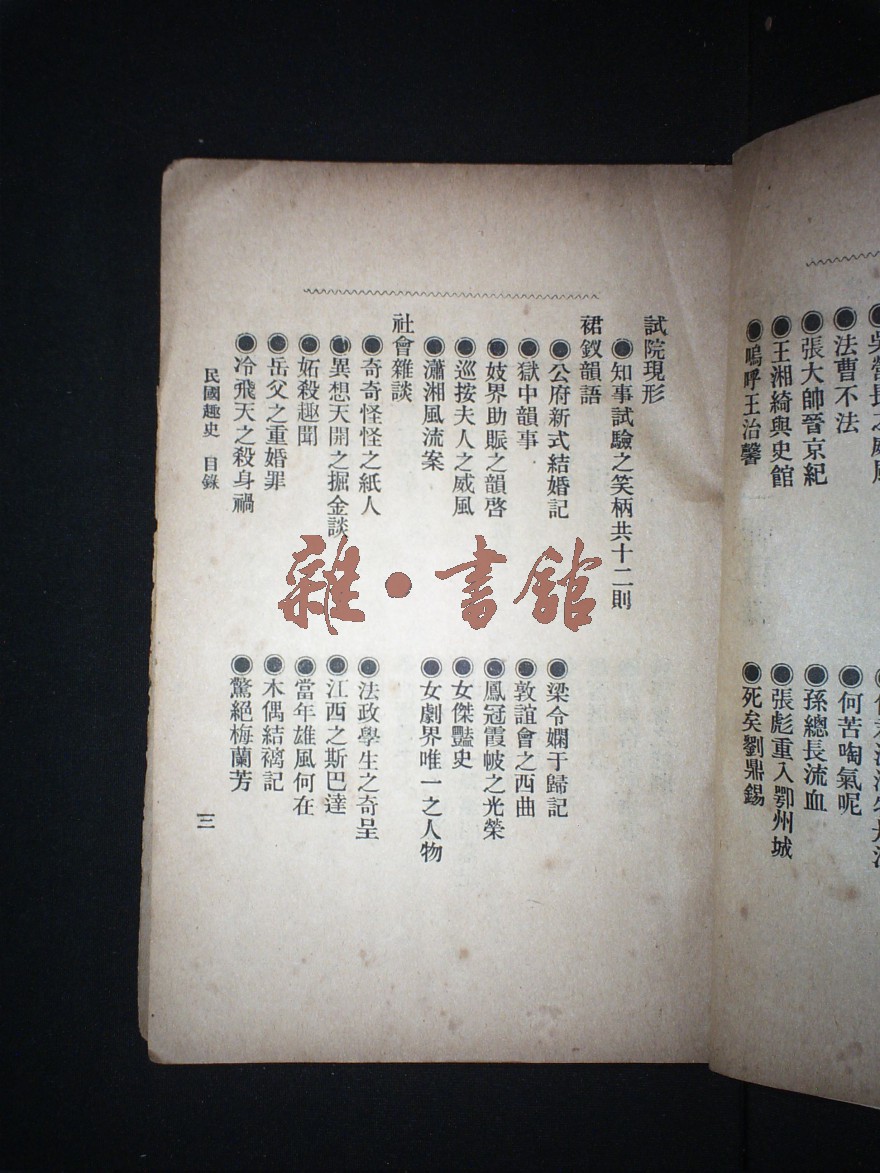 法曹不法
何苦啕氣呢
張大帥晉京紀
孫總長流血
王湘綺與史館
張彪重入鄂州城
嗚呼王治馨
死矣劉鼎錫
試院現形
知事試驗之笑柄共十二則
裙釵韻語
公府新式結婚記
梁令嫻于歸記
獄中韻事
敦誼會之西曲
妓界助賑之韻啓
鳳冠霞帔之光榮
巡按夫人之威風
女傑豔史
瀟湘風流案
女劇界唯一之人物
社會雜談
奇奇怪怪之紙人
法政學生之奇呈
異想天開之掘金談
江西之斯巴達
妬殺趣聞
當年雄風何在
岳父之重婚罪
木偶結褵記
冷飛天之殺身禍
驚絕梅蘭芳
民國趣史 目錄
三
雜·書館